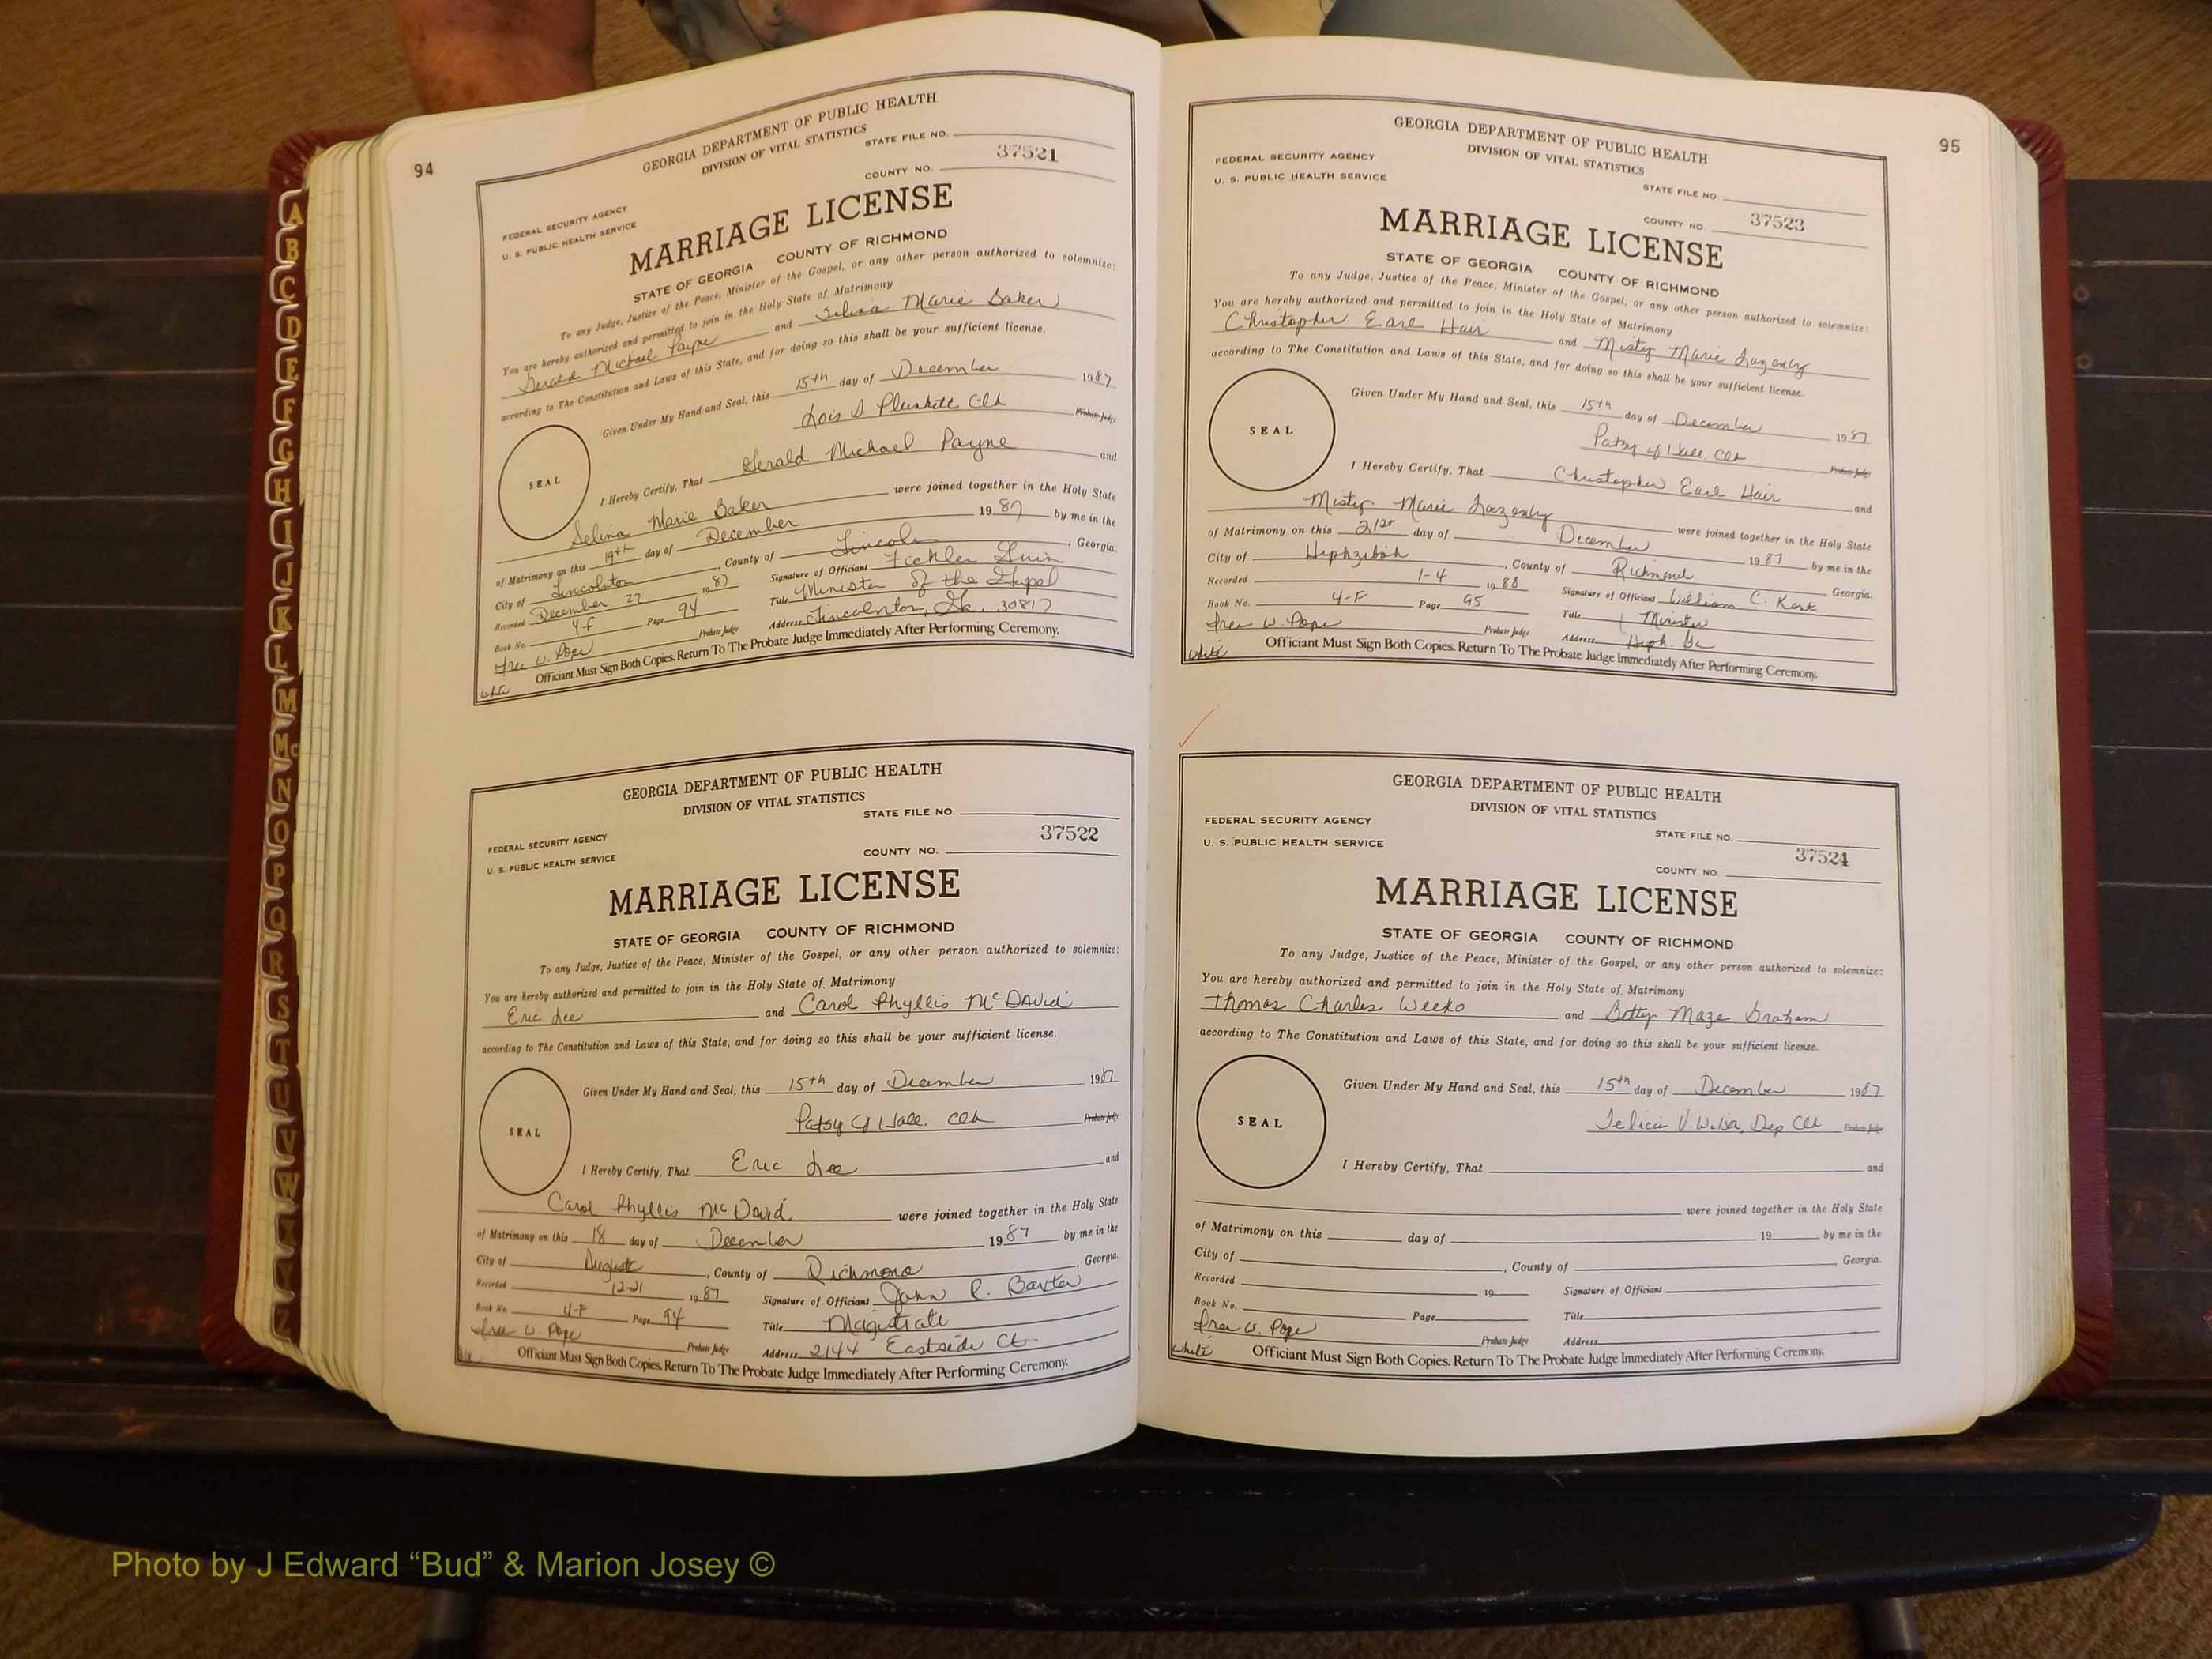 94
GEORGIA DEPARTMENT OF PUBLIC HEALTH
DIVISION OF VITAL STATISTICS
STATE FILE NO.
37521
COUNTY NO.
FEDERAL SECURITY AGENCY
U. S. PUBLIC HEALTH SERVICE
MARRIAGE LICENSE
STATE OF GEORGIA COUNTY OF RICHMOND
To any Judge, Justice of the Peace, Minister of the Gospel, or any other person authorized to solemnize:
You are hereby authorized and permitted to join in the Holy State of Matrimony
Gerald Michael Payne and Selina Marie Baker
according to The Constitution and Laws of this State, and for doing so this shall be your sufficient license.
Given Under My Hand and Seal, this 15th day of December 1987
Lois D Plunkett Clk Probate Judge
SEAL
I Hereby Certify, That Gerald Michael Payne and
Selina Marie Baker were joined together in the Holy State
of Matrimony on this 19th day of December 1987 by me in the
City of Lincolnton, County of Lincoln, Georgia.
Recorded December 22 1987 Signature of Officiant Ficklen Guin
Book No. 4-F Page 94 Title Minister of the Gospel
Fred W. Pope Probate Judge Address Lincolnton, Ga. 30817
Officiant Must Sign Both Copies. Return To The Probate Judge Immediately After Performing Ceremony.
White
GEORGIA DEPARTMENT OF PUBLIC HEALTH
DIVISION OF VITAL STATISTICS
STATE FILE NO.
37522
FEDERAL SECURITY AGENCY
U. S. PUBLIC HEALTH SERVICE
COUNTY NO.
MARRIAGE LICENSE
STATE OF GEORGIA COUNTY OF RICHMOND
To any Judge, Justice of the Peace, Minister of the Gospel, or any other person authorized to solemnize:
You are hereby authorized and permitted to join in the Holy State of Matrimony
Eric Lee and Carol Phyllis McDavid
according to The Constitution and Laws of this State, and for doing so this shall be your sufficient license.
Given Under My Hand and Seal, this 15th day of December 1987
Patsy G Hall, Clk Probate Judge
SEAL
I Hereby Certify, That Eric Lee and
Carol Phyllis McDavid were joined together in the Holy State
of Matrimony on this 18 day of December 1987 by me in the
City of Augusta, County of Richmond, Georgia.
Recorded 12-21 1987 Signature of Officiant John R. Baxter
Book No. 4-F Page 94 Title Magistrate
Fred W. Pope Probate Judge Address 2144 Eastside Ct.
Officiant Must Sign Both Copies. Return To The Probate Judge Immediately After Performing Ceremony.
95
GEORGIA DEPARTMENT OF PUBLIC HEALTH
DIVISION OF VITAL STATISTICS
FEDERAL SECURITY AGENCY
U. S. PUBLIC HEALTH SERVICE
STATE FILE NO.
COUNTY NO. 37523
MARRIAGE LICENSE
STATE OF GEORGIA COUNTY OF RICHMOND
To any Judge, Justice of the Peace, Minister of the Gospel, or any other person authorized to solemnize:
You are hereby authorized and permitted to join in the Holy State of Matrimony
Christopher Earl Hair and Misty Marie Lazenby
according to The Constitution and Laws of this State, and for doing so this shall be your sufficient license.
Given Under My Hand and Seal, this 15th day of December 1987
Patsy G Hall, Clk Probate Judge
SEAL
I Hereby Certify, That Christopher Earl Hair and
Misty Marie Lazenby were joined together in the Holy State
of Matrimony on this 21st day of December 1987 by me in the
City of Hephzibah, County of Richmond Georgia.
Recorded 1-4 1988 Signature of Officiant William C. Kent
Book No. 4-F Page 95 Title Minister
Fred W. Pope Probate Judge Address Heph. Ga
Officiant Must Sign Both Copies. Return To The Probate Judge Immediately After Performing Ceremony.
White
GEORGIA DEPARTMENT OF PUBLIC HEALTH
DIVISION OF VITAL STATISTICS
FEDERAL SECURITY AGENCY
U. S. PUBLIC HEALTH SERVICE
STATE FILE NO.
37524
COUNTY NO.
MARRIAGE LICENSE
STATE OF GEORGIA COUNTY OF RICHMOND
To any Judge, Justice of the Peace, Minister of the Gospel, or any other person authorized to solemnize:
You are hereby authorized and permitted to join in the Holy State of Matrimony
Thomas Charles Weeks and Betty Maze Graham
according to The Constitution and Laws of this State, and for doing so this shall be your sufficient license.
Given Under My Hand and Seal, this 15th day of December 1987
Felicia V. Wilson, Dep Clk Probate Judge
SEAL
I Hereby Certify, That and
were joined together in the Holy State
of Matrimony on this day of 19 by me in the
City of , County of , Georgia.
Recorded 19 Signature of Officiant
Book No. Page Title
Fred W. Pope Probate Judge Address
Officiant Must Sign Both Copies. Return To The Probate Judge Immediately After Performing Ceremony.
White
A
B
C
D
E
F
G
H
I
J
K
L
M
Mc
N
O
P
Q
R
S
T
U
V
W
Z
Photo by J Edward “Bud” & Marion Josey ©